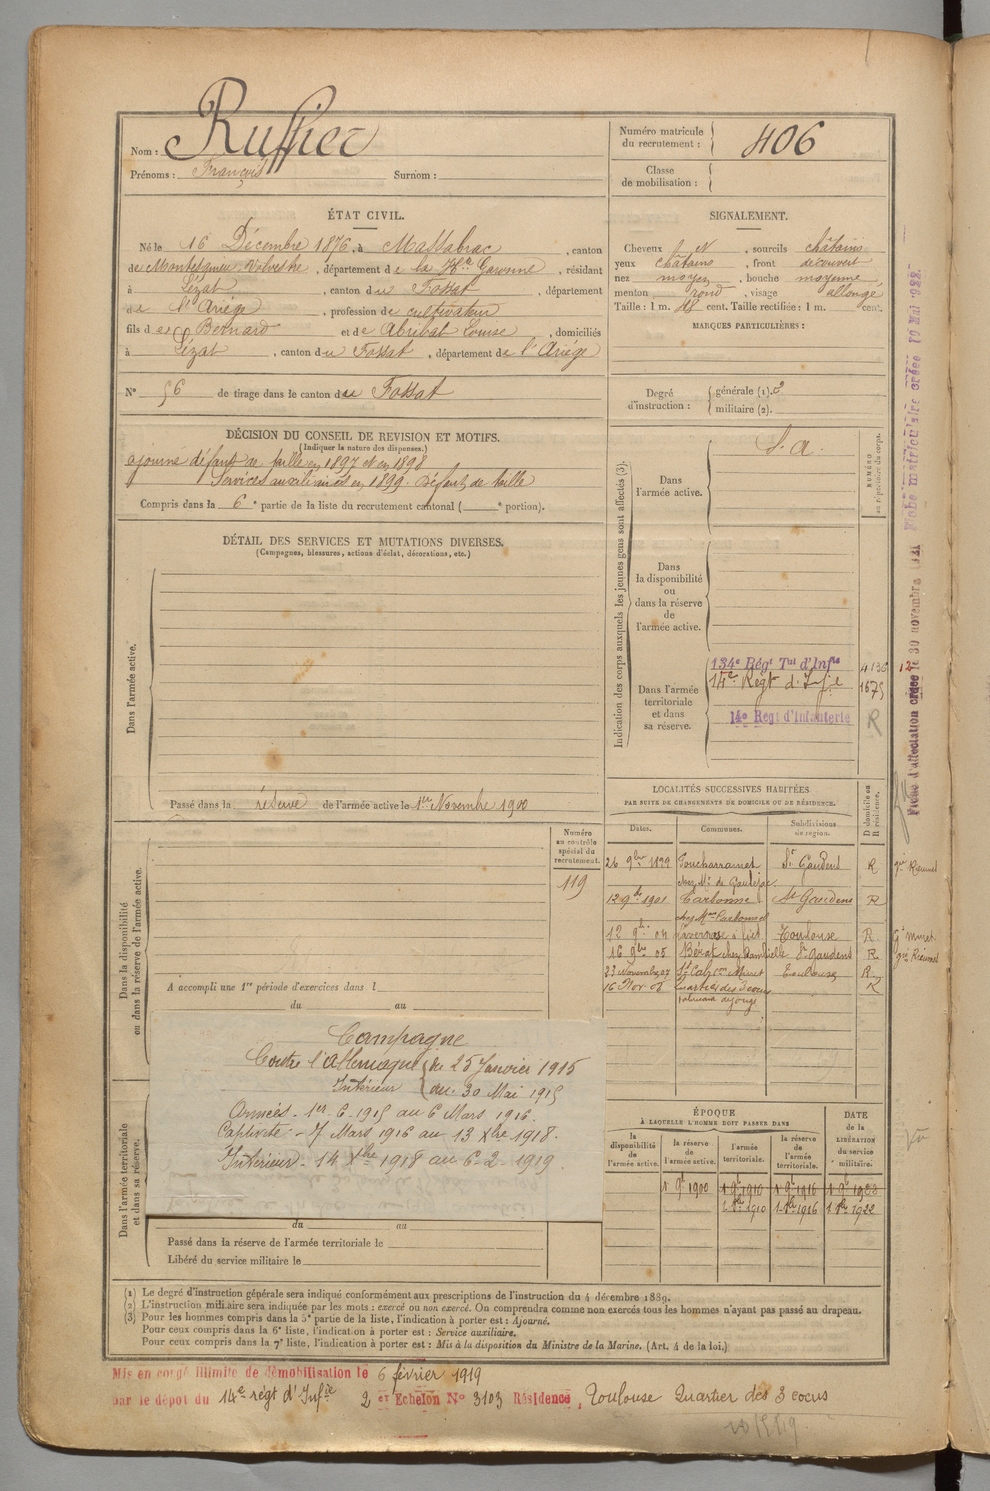 Nom : Ruffier
Prénoms : François Surnom :
Numéro matricule du recrutement : 406
Classe de mobilisation :
ÉTAT CIVIL.
Né le 16 Décembre 1876, à Massabrac, canton
de Montesquieu Volvestre, département de la Hte Garonne, résidant
à Lézat, canton du Fossat, département
de l'Ariège, profession de cultivateur
fils de Bernard et de Abribat Louise, domiciliés
à Lézat, canton du Fossat, département de l'Ariège
N° 56 de tirage dans le canton du Fossat
SIGNALEMENT.
Cheveux N, sourcils châtains
yeux châtains, front découvert
nez moyen, bouche moyenne
menton rond, visage allongé
Taille : 1 m. 48 cent. Taille rectifiée : 1 m. cent.
MARQUES PARTICULIÈRES :
Degré d'instruction : générale (1). 3
militaire (2).
DÉCISION DU CONSEIL DE REVISION ET MOTIFS.
(Indiquer la nature des dispenses.)
ajourné défaut de taille en 1897 et en 1898
Services auxiliaires en 1899. défaut de taille
Compris dans la 6e partie de la liste du recrutement cantonal ( e portion).
DÉTAIL DES SERVICES ET MUTATIONS DIVERSES.
(Campagnes, blessures, actions d'éclat, décorations, etc.)
Dans l'armée active.
Passé dans la réserve de l'armée active le 1er Novembre 1900
Indication des corps auxquels les jeunes gens sont affectés (3).
NUMÉRO au répertoire du corps.
Dans l'armée active.
S. A.
Dans la disponibilité ou dans la réserve de l'armée active.
Dans l'armée territoriale et dans sa réserve.
134e Régt Tal d'Infie
14e Régt d'Infie 1675
14e Régt d'Infanterie R
Fiche d'affectation créée le 30 novembre 1921 Fiche matriculaire créée 10 Mai 1922.
LOCALITÉS SUCCESSIVES HABITÉES
PAR SUITE DE CHANGEMENTS DE DOMICILE OU DE RÉSIDENCE.
Dates. Communes. Subdivisions de région. D domicile ou R résidence.
26 9bre 1899 St Gaudens R
12 9bre 1901 Carbonne St Gaudens R
12 9bre 04 Toulouse R
16 9bre 05 Bérat St Gaudens R
23 Novembre 07 Toulouse R
16 Nov 08 quartier des 3 cocus R
Numéro au contrôle spécial du recrutement.
119
Dans la disponibilité ou dans la réserve de l'armée active.
A accompli une 1re période d'exercices dans l
du au
Campagne
Contre l'Allemagne du 25 Janvier 1915
Intérieur au 30 Mai 1915
Armées - 1er-6-1915 au 6 Mars 1916.
Captivité - 7 Mars 1916 au 13 Xbre 1918.
Intérieur - 14 Xbre 1918 au 6-2-1919
Dans l'armée territoriale et dans sa réserve.
du au
Passé dans la réserve de l'armée territoriale le
Libéré du service militaire le
ÉPOQUE
À LAQUELLE L'HOMME DOIT PASSER DANS
DATE de la LIBÉRATION du service militaire.
la disponibilité de l'armée active. la réserve de l'armée active. l'armée territoriale. la réserve de l'armée territoriale.
1 9e 1900 1 9e 1910 1 9e 1916
1910 1916 1922
(1) Le degré d'instruction générale sera indiqué conformément aux prescriptions de l'instruction du 4 décembre 1889.
(2) L'instruction militaire sera indiquée par les mots : exercé ou non exercé. On comprendra comme non exercés tous les hommes n'ayant pas passé au drapeau.
(3) Pour les hommes compris dans la 5e partie de la liste, l'indication à porter est : Ajourné.
Pour ceux compris dans la 6e liste, l'indication à porter est : Service auxiliaire.
Pour ceux compris dans la 7e liste, l'indication à porter est : Mis à la disposition du Ministre de la Marine. (Art. 4 de la loi.)
Mis en congé illimité de démobilisation le 6 février 1919
par le dépôt du 14e régt d'Infie 2 e Echelon N° 3103 Résidence, Toulouse Quartier des 3 cocus